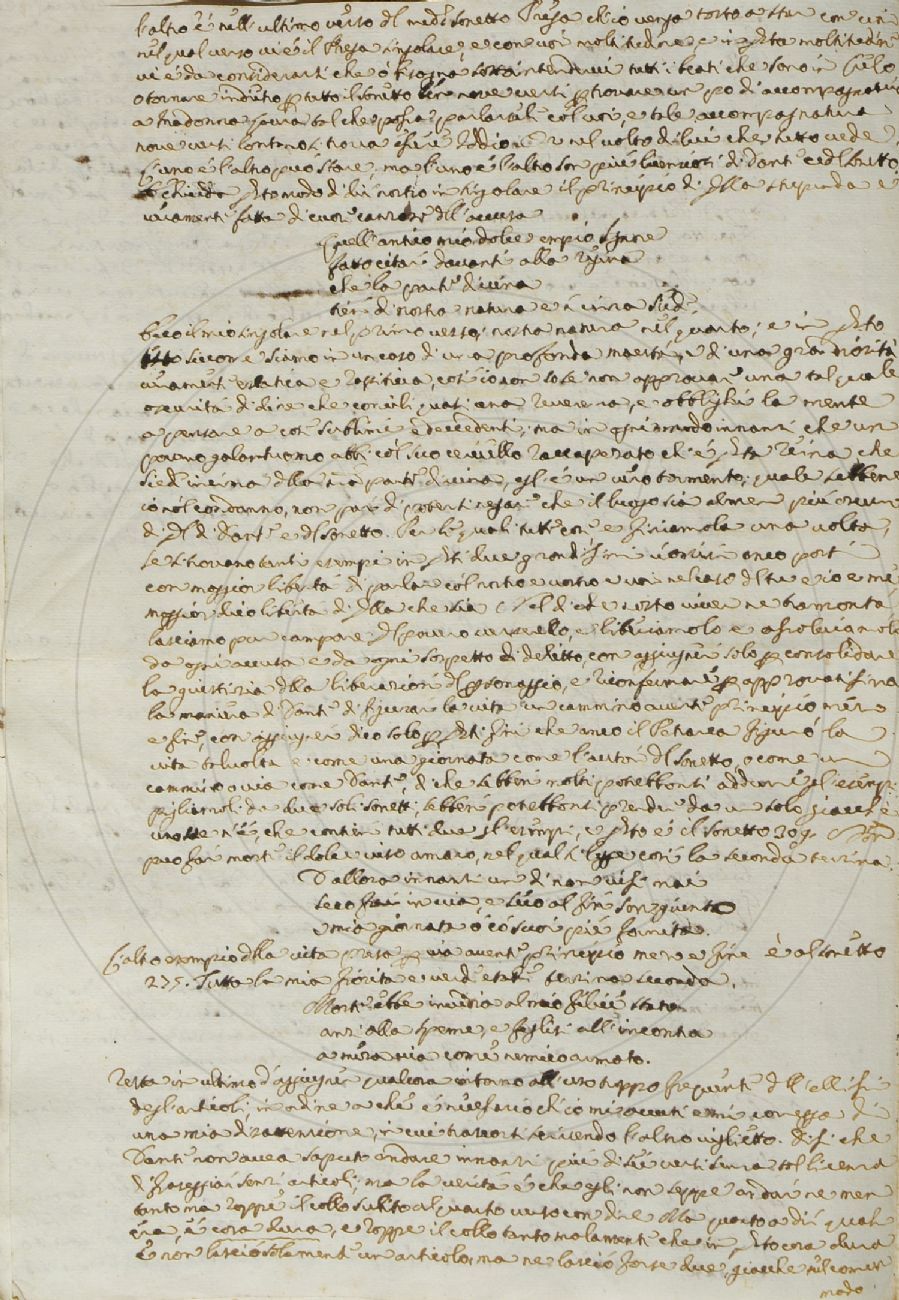 l'altro è nell'ultimo verso del med.º sonetto Presa ch'io venga torto a star con voi
nel qual verso vi è il Presa singolare, e con voi moltitudine, e in q.ta moltitudine
vi è da considerarsi che o bisogna sottointendervi tutti i beati che sono in Cielo
o tornare indietro p tutto il sonetto nove versi p trovare un po di accompagnatura
a Madonna sicura tal che possa parlarsili col voi, e tale accompagnatura
nove versi lontano si trova esser Iddio nel volto di lui che tutto vede
L'uno e l'altro può stare, ma l'uno e l'altro son più di Dante e del sonetto
Chiude q.to modo di dir nostro in singolare il principio di q.lla stupenda e
veramente fatta di cuore canzone dell'accusa
Quell'antico mio dolce empio Signore
fatto citar davanti alla Reina
che la parte divina
tien di nostra natura e in cima siede,
Ecco il mio singolare nel primo verso, nostra natura nel quarto; e in q.to
siccome siamo in un caso di una profonda maestà, e di una gran
veramente estatica e, così io non so se non approvare una tal quale
oscurità di dire che concilj quasi una reverenza, e obblighi la mente
a pensare a cose sublimi e decedenti, ma in q.sto mondo innanzi che un
povero galantuomo abbi col suo cervello raccapezzato chi è q.ta Reina che
siede in cima della sua parte divina, egli è un vero tormento, quale sebbene
io nol condanno, non può di potersi negare che il luogo sia almen più oscuro
di q.l di Dante e del sonetto. Per le quali tutte cose e finiamola una volta,
se si trovano tanti esempi in q.ti due grandissimi uomini anco posti
con maggior libertà di parlare col nostro e vostro e voi nel caso del tu e io e me
maggior dico libertà di q.lla che sia Nel dì che corto viver ne tramonta
lasciamo pur campare q.l povero cervello, e liberiamolo e assolviamolo
da ogni accusa e da ogni sospetto di delitto, con aggiugner solo p consolidare
la giustizia della liberazion del personaggio, e riconfermare p approvatissima
la maniera di Dante di figurar la vita un cammino avente principio mezzo
e fine, con aggiugner dico solo p q.ti fini che anco il Petrarca figurò la
vita talvolta e come una giornata come l'autor del sonetto, o come un
cammino o via come Dante, di che sebben molti potessonsi addurre gl'esempj
pigliamoli da due soli sonetti, sebben potessonsi prender da un solo giacchè
uno ve n'è, che contien tutti due gl'esempi, e q.to è il sonetto 309. Non
può far morte il dolce viso amaro, nel qual si legge così la seconda terzina.
D'allora innanzi un dì non vissi mai
seco fui in via e seco al fin son giunto
e mia giornata ò co' suoi piè fornita.
L'altro esempio della vita presa p via avente principio mezo e fine è al sonetto
275. Tutta la mia fiorita e verde etate terzina seconda.
Morte ebbe invidia al mio felice stato
anzi alla speme, e feglisi all'incontra
a mezza via come nemico armato.
Resta in ultimo d'aggiugner qualcosa intorno all'uso troppo frequente dell'ellissi
degl'articoli, in ordine a che è necessario ch'io mi accusi e mi confessi di
una mia disattenzione, in cui trascorsi scrivendo l'altro viglietto. Dissi che
Dante non avea saputo andare innanzi più di sei versi senza tal licenza
di fraseggiar senza articoli; ma la verità è che egli non seppe andarne men
tanto ma roppe il collo subito al quarto verso con dire Ma quanto a dir qual
era, è cosa dura, e roppe il collo tanto malamente che in q.to cosa dura
e' non lasciò solamente un articolo, ma ne lasciò forse due, giacchè nel comun
modo